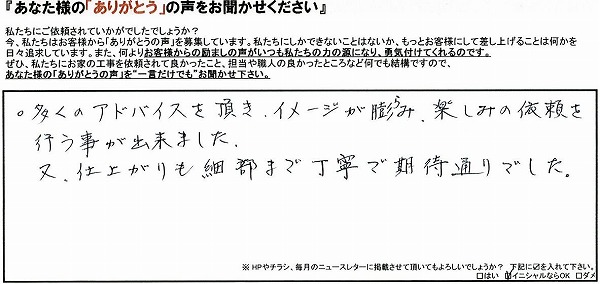 『あなた様の「ありがとう」の声をお聞かせください』
私たちにご依頼されていかがでしたでしょうか?
今、私たちはお客様から「ありがとうの声」を募集しています。私たちにしかできないことはないか、もっとお客様にして差し上げることは何かを
日々追求しています。また、何よりお客様からの励ましの声がいつも私たちの力の源になり、勇気付けてくれるのです。
ぜひ、私たちにお家の工事を依頼されて良かったこと、担当や職人の良かったところなど何でも結構ですので、
あなた様の「ありがとうの声」を“一言だけでも”お聞かせ下さい。
○多くのアドバイスを頂き、イメージが膨らみ、楽しみの依頼を
行う事が出来ました。
又、仕上がりも細部まで丁寧で期待通りでした。
※HPやチラシ、毎月のニュースレターに掲載させて頂いてもよろしいでしょうか? 下記に☑を入れて下さい。
□はい ☑イニシャルならOK □ダメ